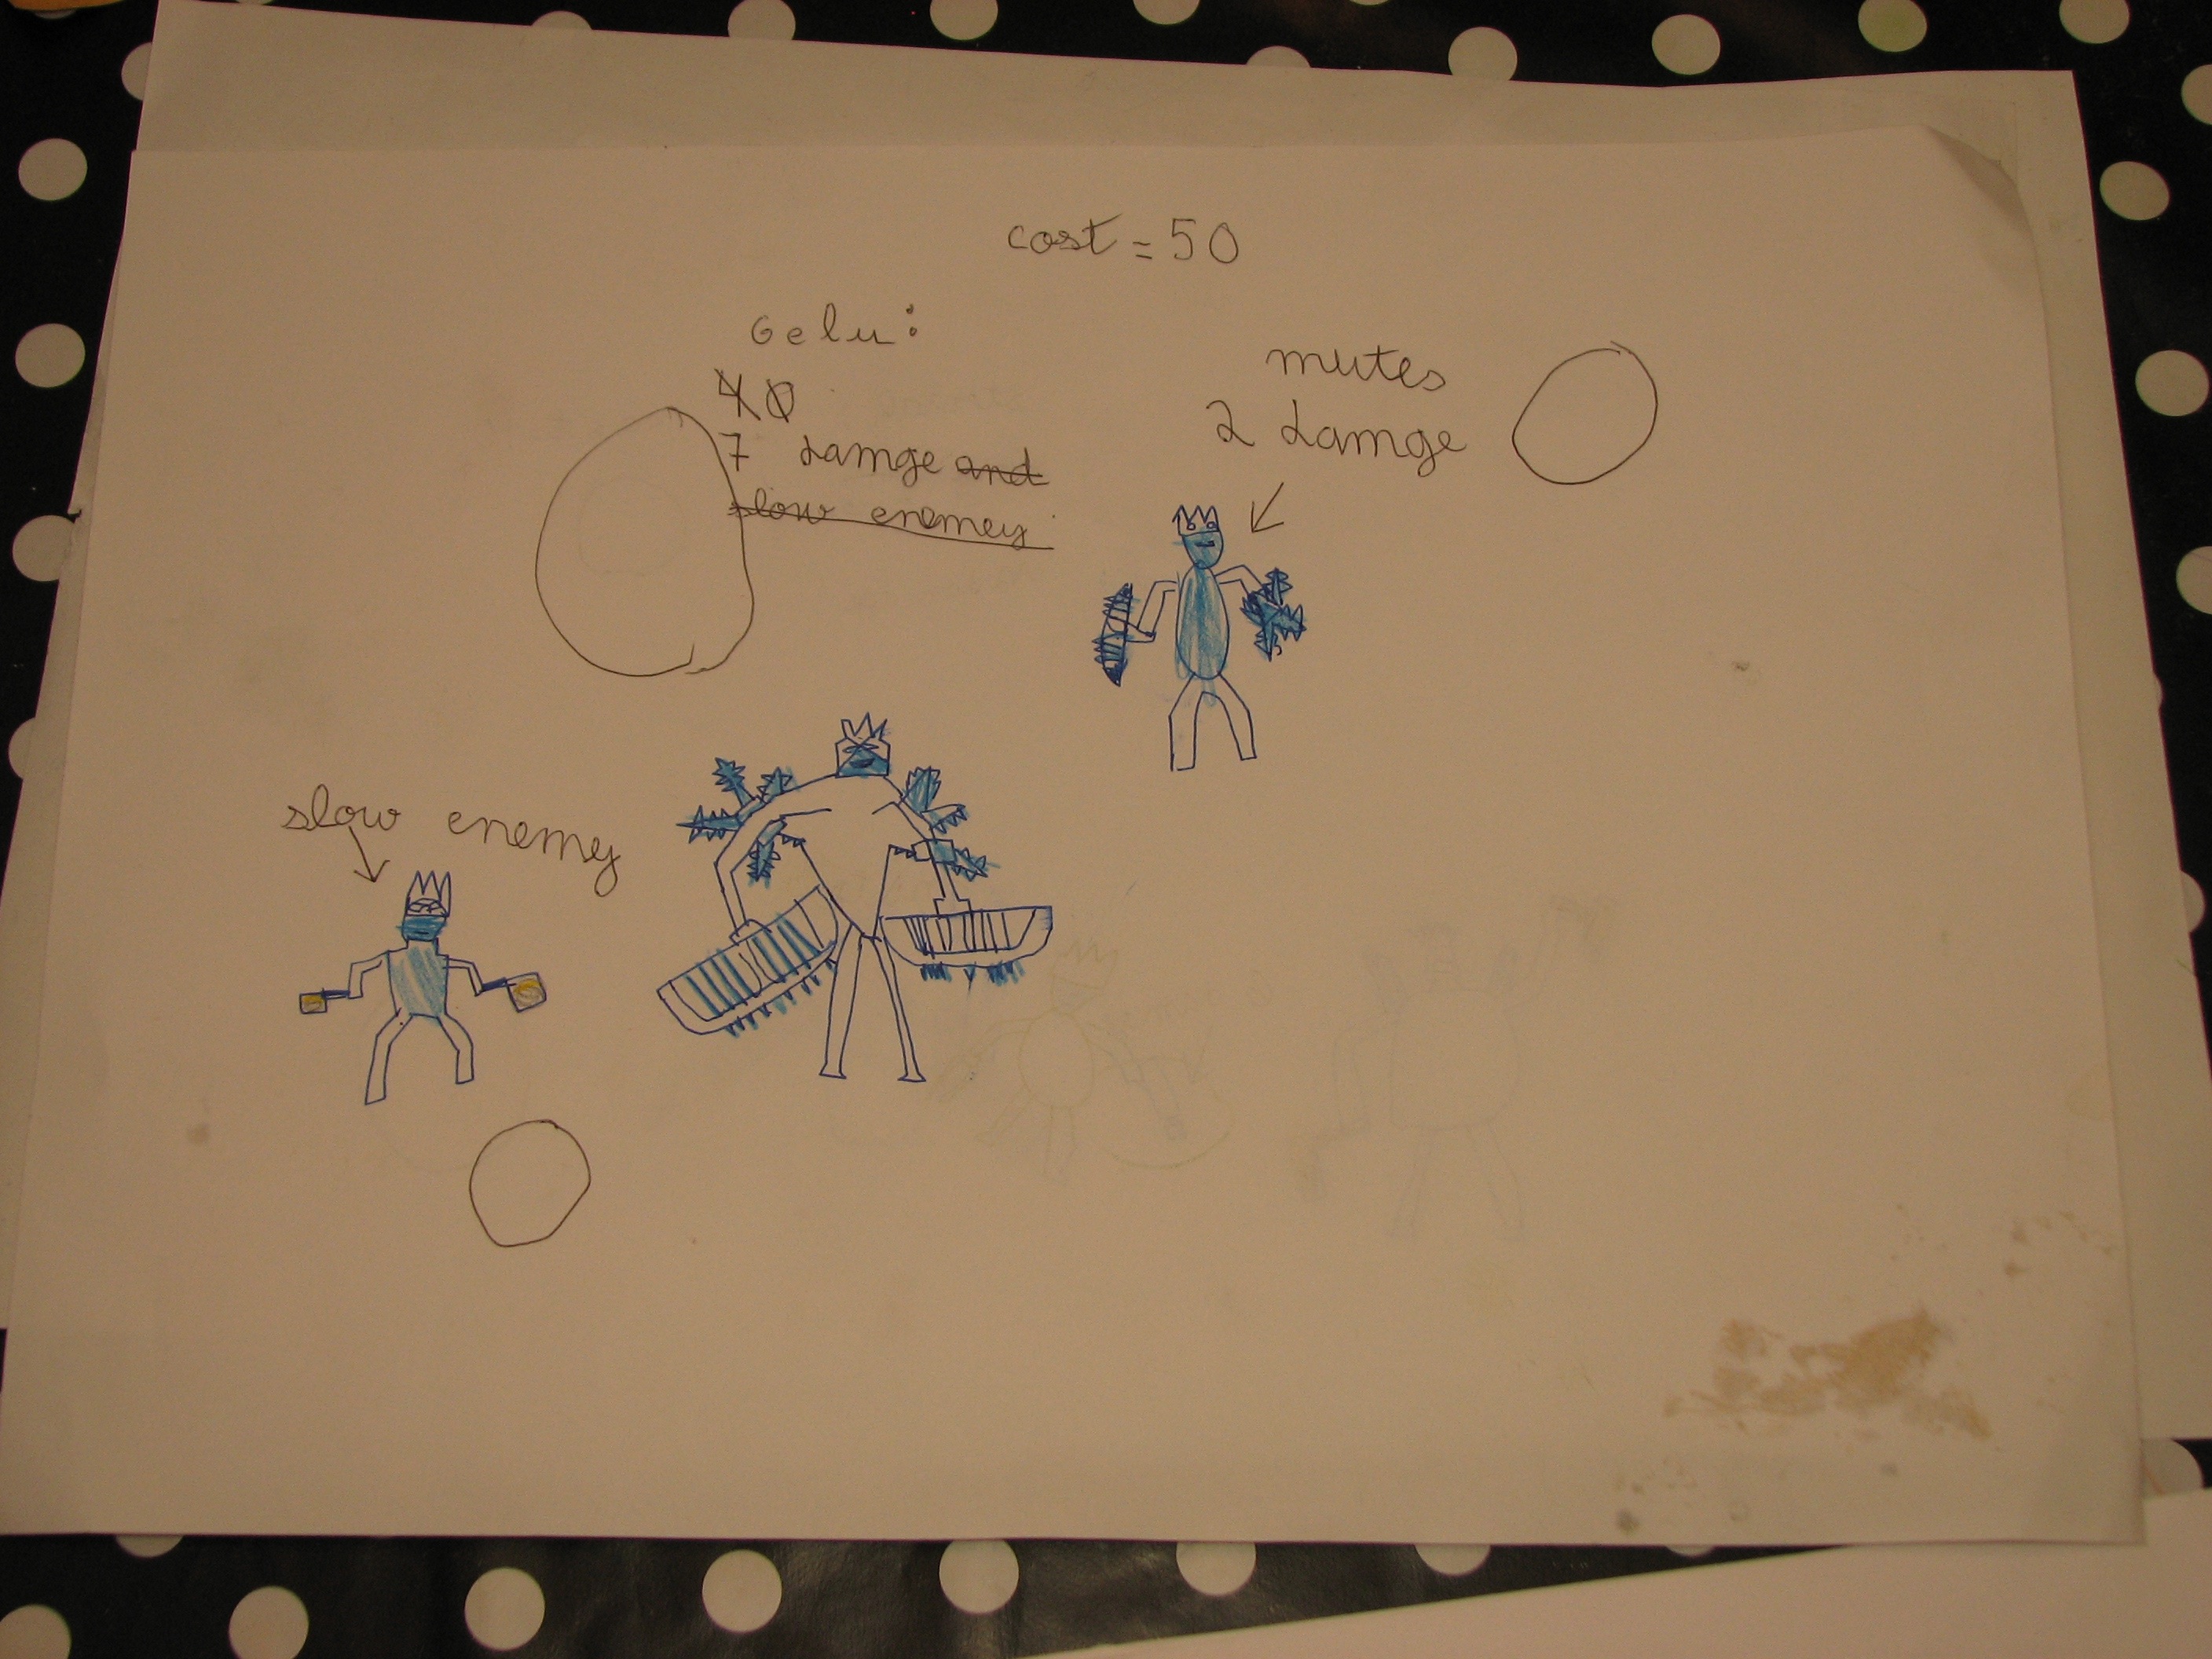 cost = 50
Gelu:
40
7 damge and
slow enemey
mutes
2 damge
slow enemy